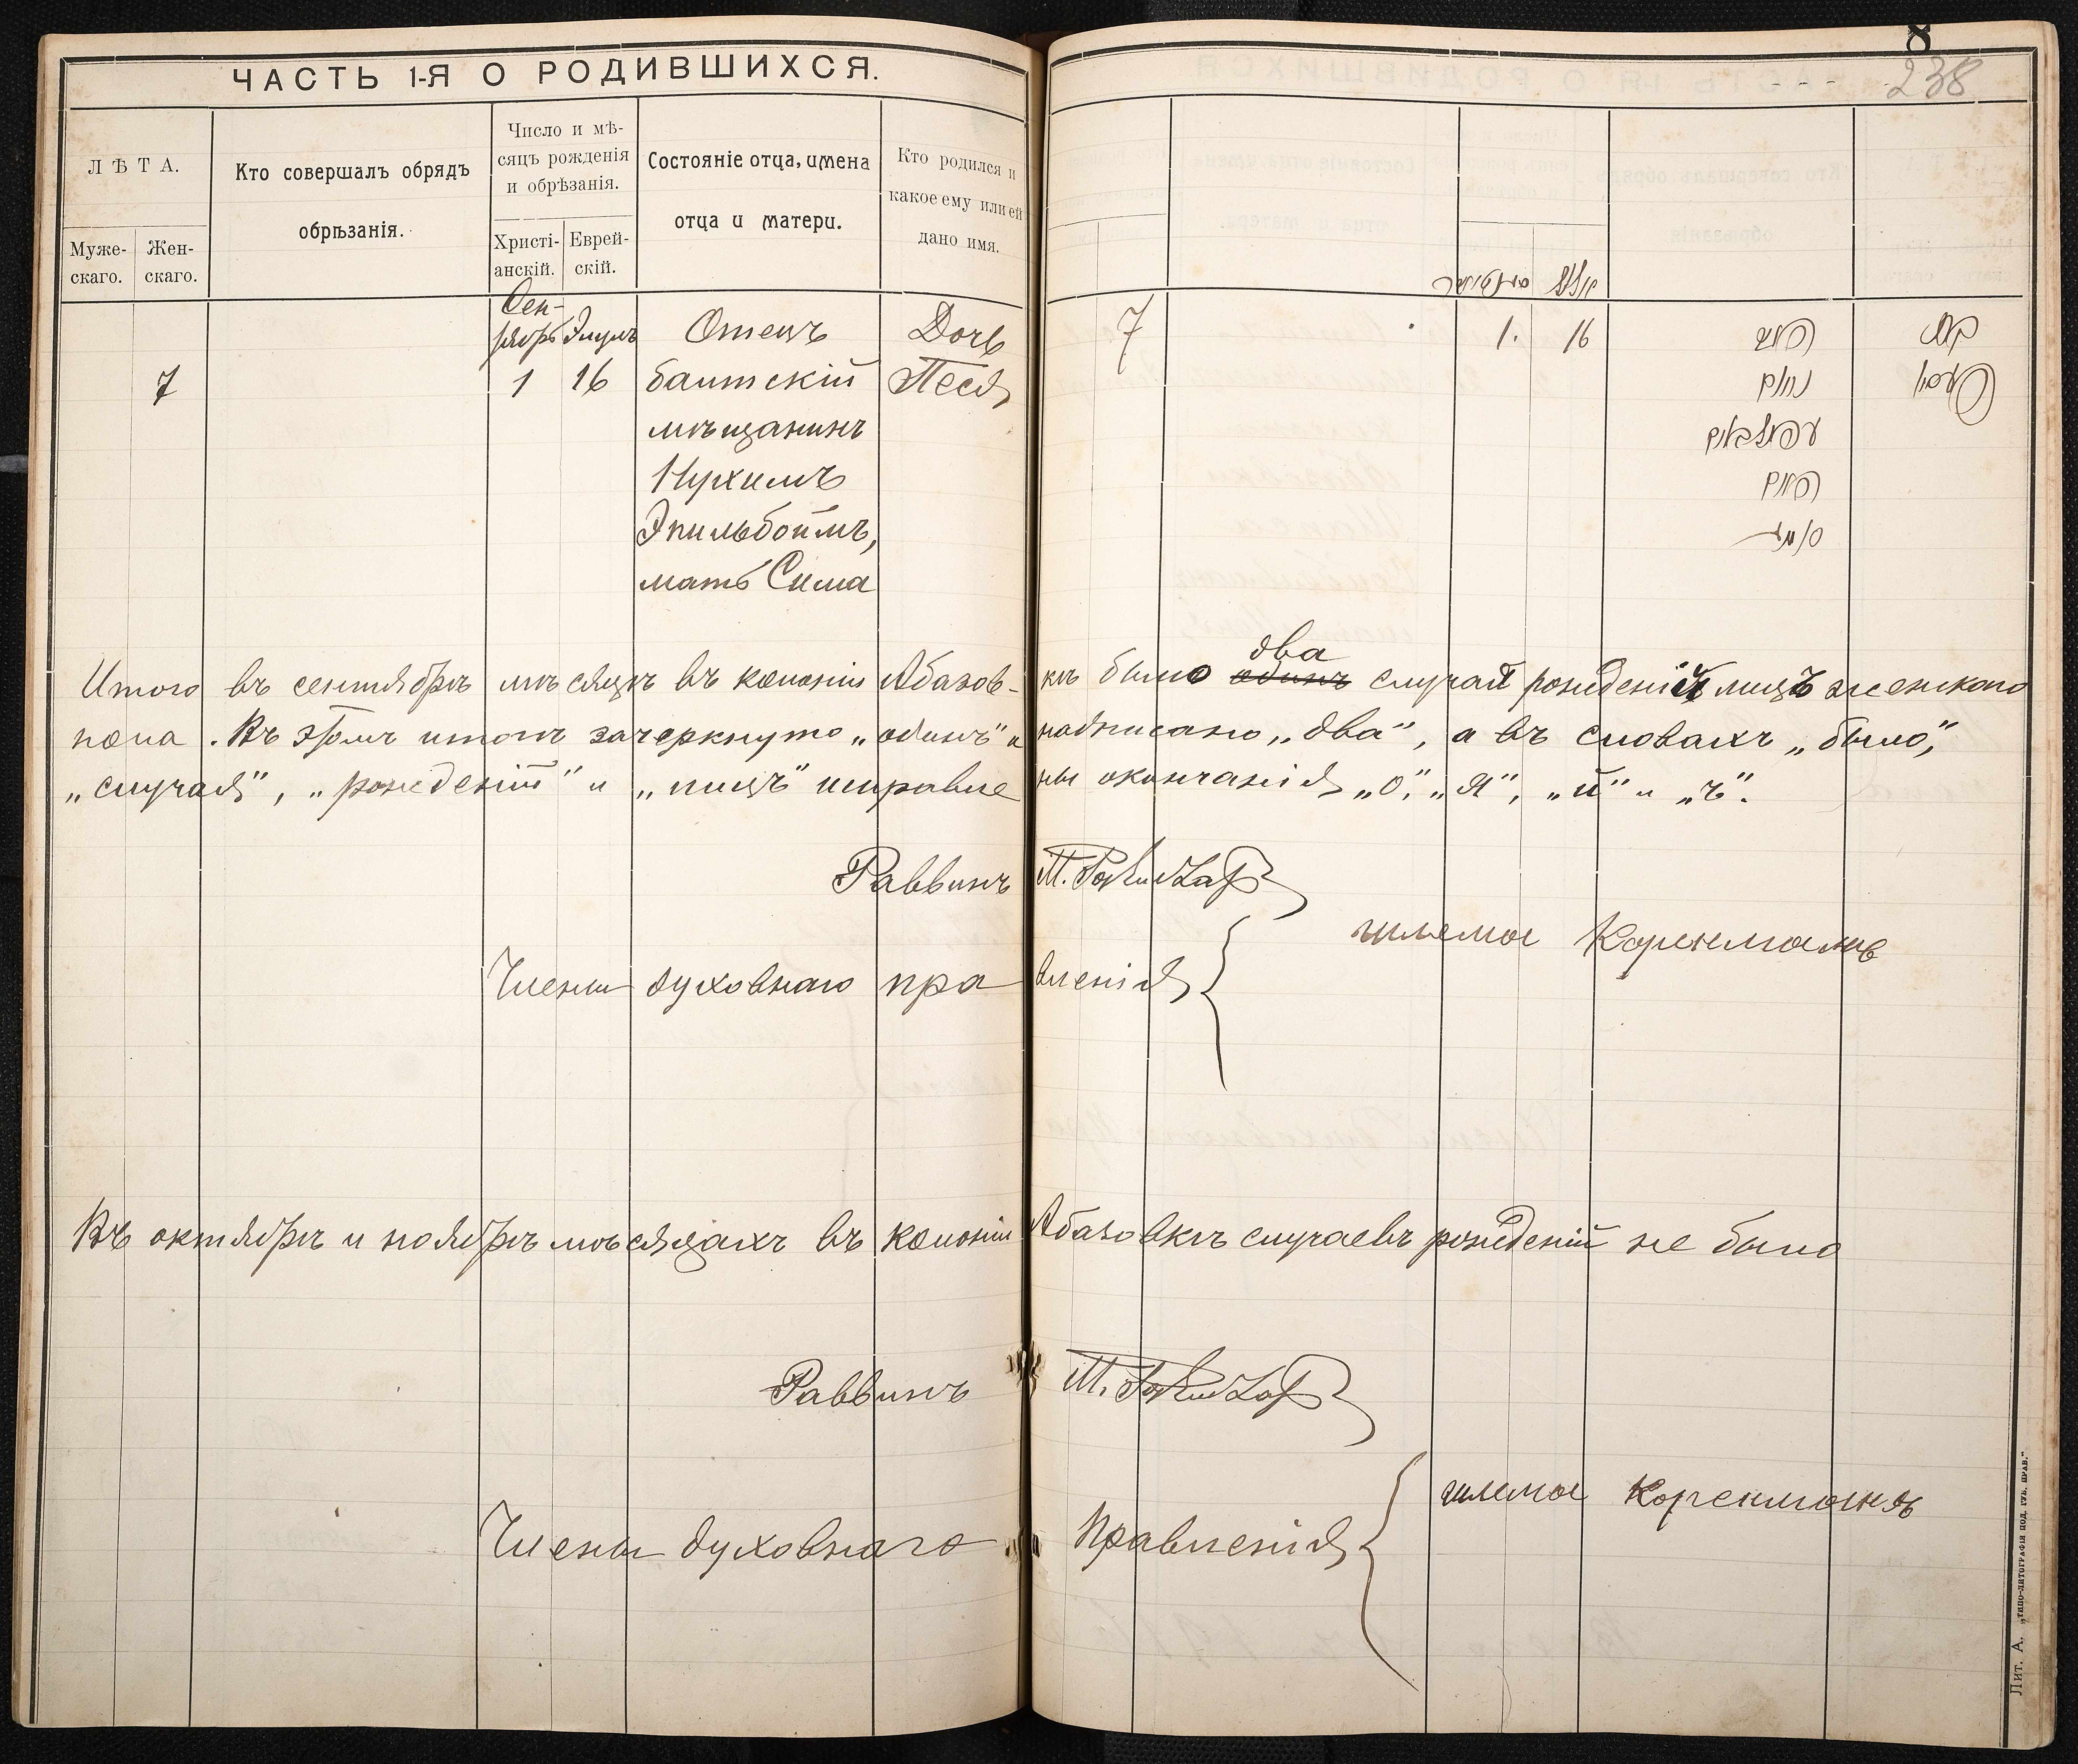 ЧАСТЬ 1-Я О РОДИВШИХСЯ.
ЛѢТА.
Муже-
скаго.
Жен-
скаго.
Кто совершалъ обрядъ
обрѣзанія.
Число и мѣ-
сяцъ рожденія
и обрѣзанія.
Христі-
анскій.
Еврей-
скій.
Состояніе отца, имена
отца и матери.
Кто родился и
какое ему или ей
дано имя.
Сен-
тябрь Элулъ
7
1 16
Отецъ
балтскій
мѣщанинъ
Нухимъ
Эпильбоймъ,
мать Сима
Дочь
Песя
8
238
7
1. 16
נחום
Итого въ сентябрѣ мѣсяцѣ въ колоніи Абазов-кѣ было два одинъ случая рожденій лицъ женскаго
пола. Въ этомъ итогѣ зачеркнуто „одинъ“ и надписано „два“, а въ словахъ „было“,
„случая“, „рожденій“ и „лицъ“ исправле ны окончанія „о“, „я“, „й“ и „ъ“.
Раввинъ
Члены духовнаго пра вленія
шлема Коренманъ
Въ октябрѣ и ноябрѣ мѣсяцахъ въ колоніи Абазовкѣ случаевъ рожденій не было
Раввинъ
Члены духовнаго Правленія
шлема Коренманъ
Лит. А. „типо-литографія под. гъ. прав.“